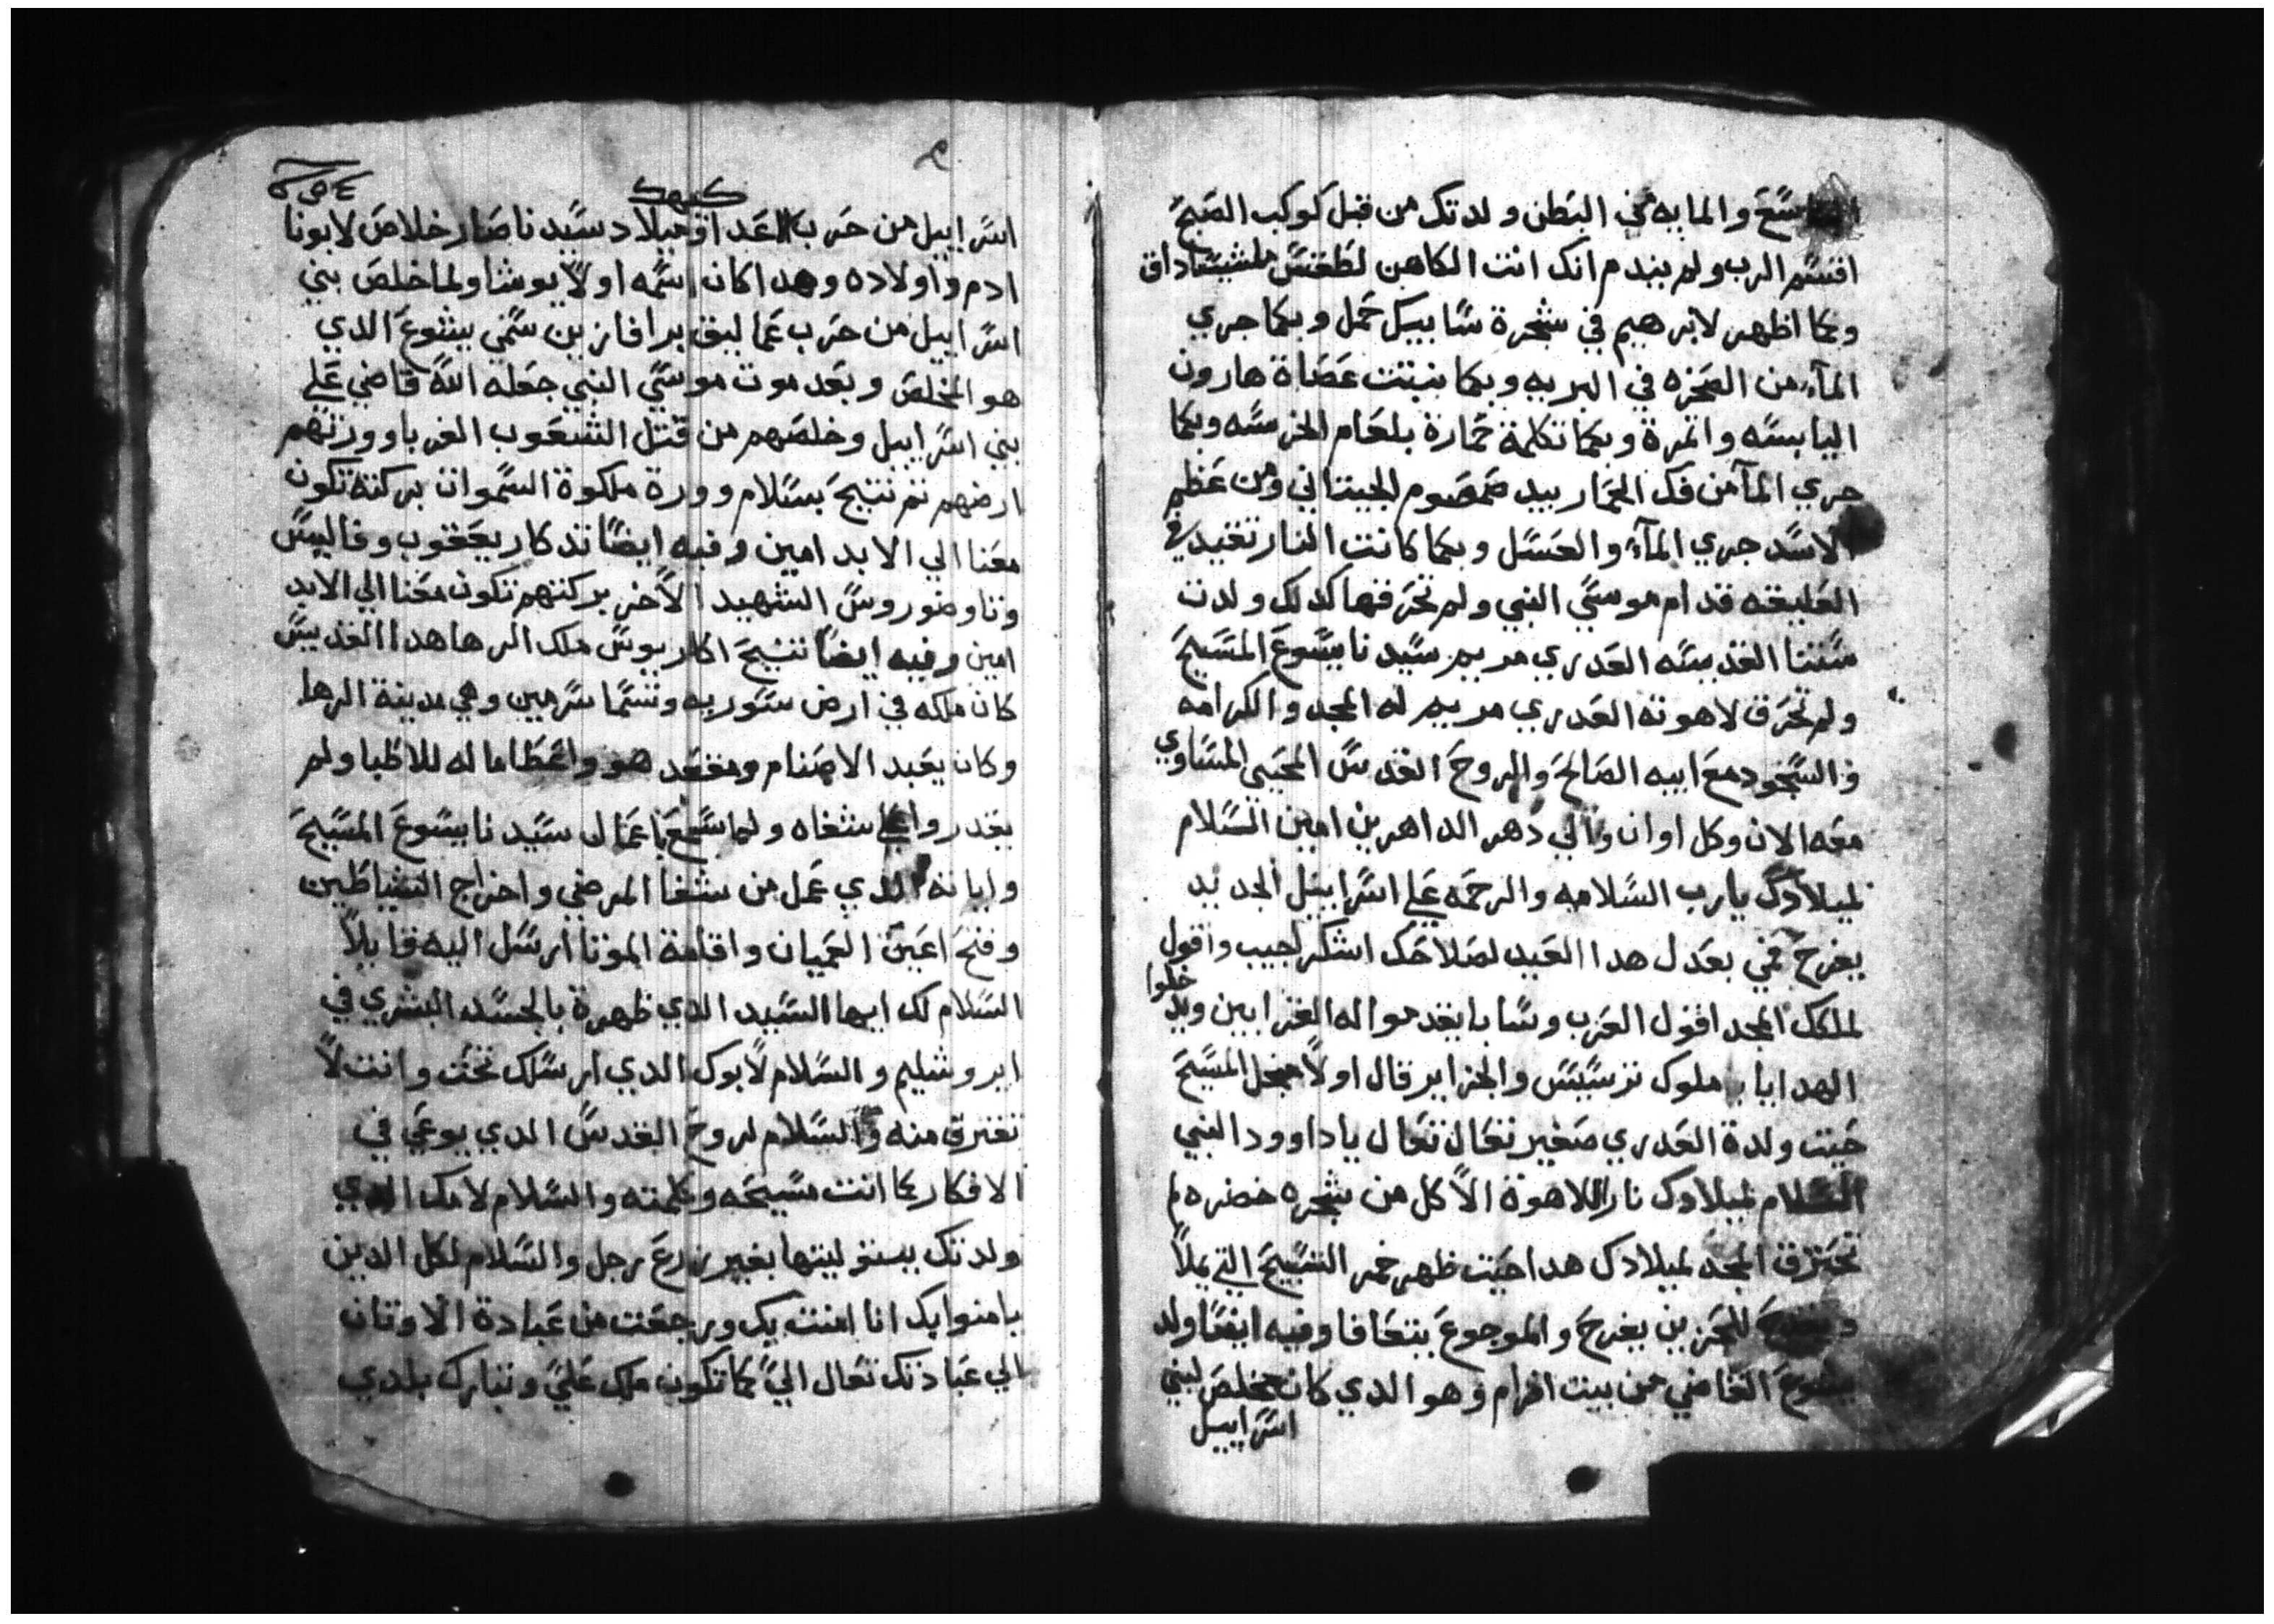 والمايه في البَطن ولدتك من قبل كَوكَب الصَبحَ
اقسَم الرب ولم يندم انك انت الكاهن لطقسَ ملشيسَاداق
وبما اظهر لابرهيم في شجرة سَابيك حَمل وبكما جري
المآء من الصَخره في البريه وبكما نبتت عَصَاة هارون
اليابسَه واتمرة وبكما تكلمة حَمارة بلعَام الخرسَه وبكما
جري المآ من فك الحَمار بيد صَمصَوم الجيتاني ومن عَظم
الاسَد جري المآء والعسَل وبكما كانت النار تقيد في
العَليقه قدام موسَي النبي ولم تحَرقها كدلك ولدت
سَتنا القديسَه العَدري مريم سَيدنا يسَوعَ المسَيحَ
ولم تحَرق لاهوته العَدري مريم له المجد والكرامه
والسَجود معَ ابيه الصَالحَ والروحَ القدسَ المحَيي المسَاوي
معَه الان وكل اوان والي دهر الداهرين امين السَلام
لميلادك يارب السَلامه والرحَمه عَلي اسَراييل الجديد
يفرحَ فمي بعَدل هدا العَيد لصَلاحَك اشكر احبيب واقول
خلوا
لملكك المجد اقول العَرب وسَابا يقدموا له القرابين ويد
الهدايا ملوك ترسَيسَ والجزاير قال اولاً المسَيحَ
حَيت ولدة العَدري صَغير تعَال تعَال ياداوود النبي
السَلام لميلادك نار اللاهوة الاكل من شجره خضره لم
تحَترق المجد لميلادك هدا حَيت ظهر خمر التسَبيحَ التي يملاً
للحَزين يفرحَ والموجوعَ يتعَافا وفيه ايضَاً ولد
يشوعَ القاضي من بيت افرام وهو الدي كان مخلصَ لبني
اسَراييل
كيهك
اسَراييل من حَرب العَدا وميلاد سَيدنا صَار خلاصَ لابونا
ادم واولاده وهدا كان اسَمه اولاً يوشا ولما خلصَ بني
اسَراييل من حَرب عَماليق برافازين سَمي يشوعَ الدي
هو المخلصَ وبعَد موت موسَي النبي جعَله اللَه قاضي عَلي
بني اسَراييل وخلصَهم من قتل الشعَوب الغربا وورتهم
ارضهم تم تنيحَ بسَلام وورة ملكوة السَموات بركته تكون
معَنا الي الابد امين وفيه ايضَاً تدكار يعَقوب وفاليسَ
وتاوضوروسَ الشهيد الاخر بركتهم تكون معَنا الي الابد
امين وفيه ايضاً تنيحَ اكاريوسَ ملك الرها هدا القديسَ
كان ملكه في ارض سَوريه وتسَما سَرمين وهي مدينة الرها
وكان يعَبد الاصَنام ومقعَد هو واعَطا ماله للاطبا ولم
يقدروا عَلي شفاه ولما سَمعَ باعَمال سَيدنا يسَوعَ المسَيحَ
واياته الدي عَمل من شفا المرضي واخراج الشياطين
وفتحَ اعَين العَميان واقامة الموتا ارسَل اليه قايلاً
السَلام لك ايها السَيد الدي ظهرة بالجسَد البشري في
ايروشليم والسَلام لابوك الدي ارسَلك تحَت وانت لا
تفترق منه والسَلام لروحَ القدسَ الدي يوعَي في
الافكار كما انت مسَيحَه وكلمته والسَلام لامك الدي
ولدتك ببتوليتها بغير زرعَ رجل والسَلام لكل الدين
يامنوا بك انا امنت بك ورجعَت من عَبادة الاوتان
الي عَبادتك تعَال اليَ كما تكون ملك عَليَ وتبارك بلدي